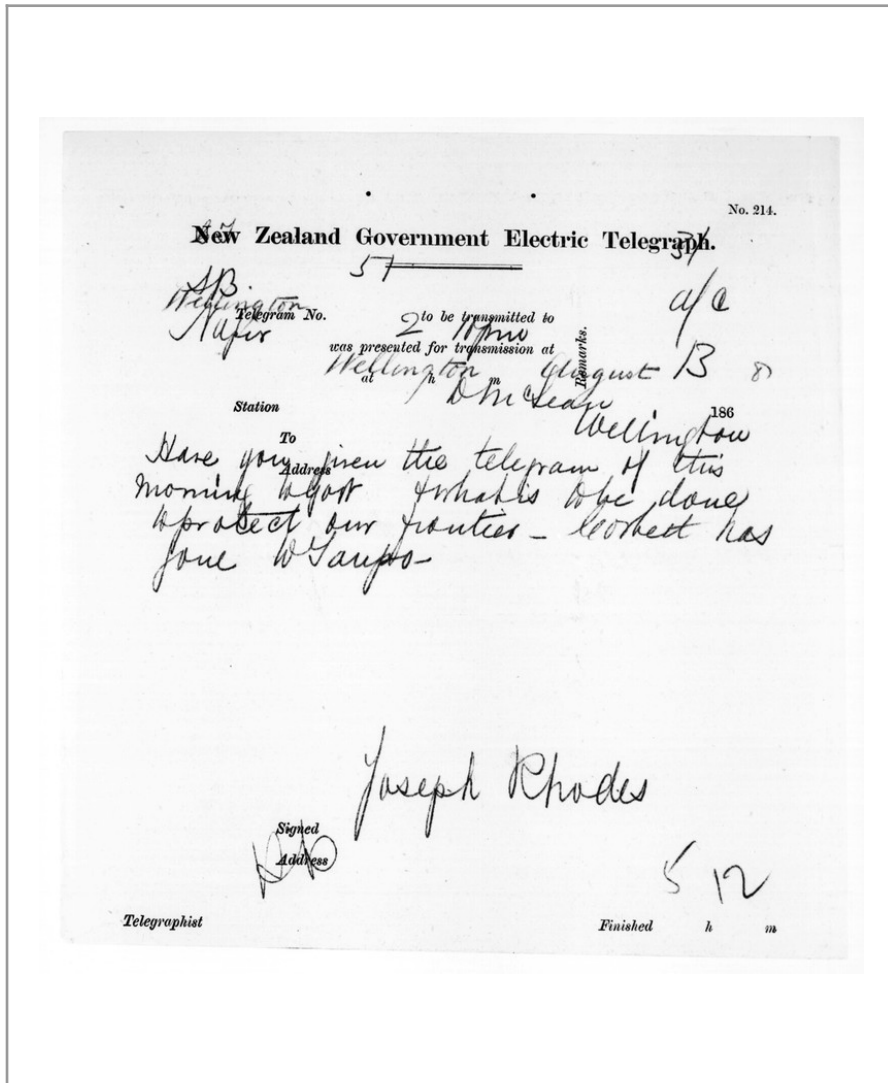 No. 214.
New Zealand Government Electric Telegraph.
57
a/c
Wellington
Telegram No. to be transmitted to
Napier 2 10 pm
was presented for transmission at Remarks.
Wellington August 13
at h m
D McLean
Station 186
To Wellington
Have you given the telegram of this
Address
morning to Govt & what is to be done
to protect our frontier – Corbett has
gone to Taupo –
Joseph Rhodes
Signed
Address
5 12
Telegraphist Finished h m